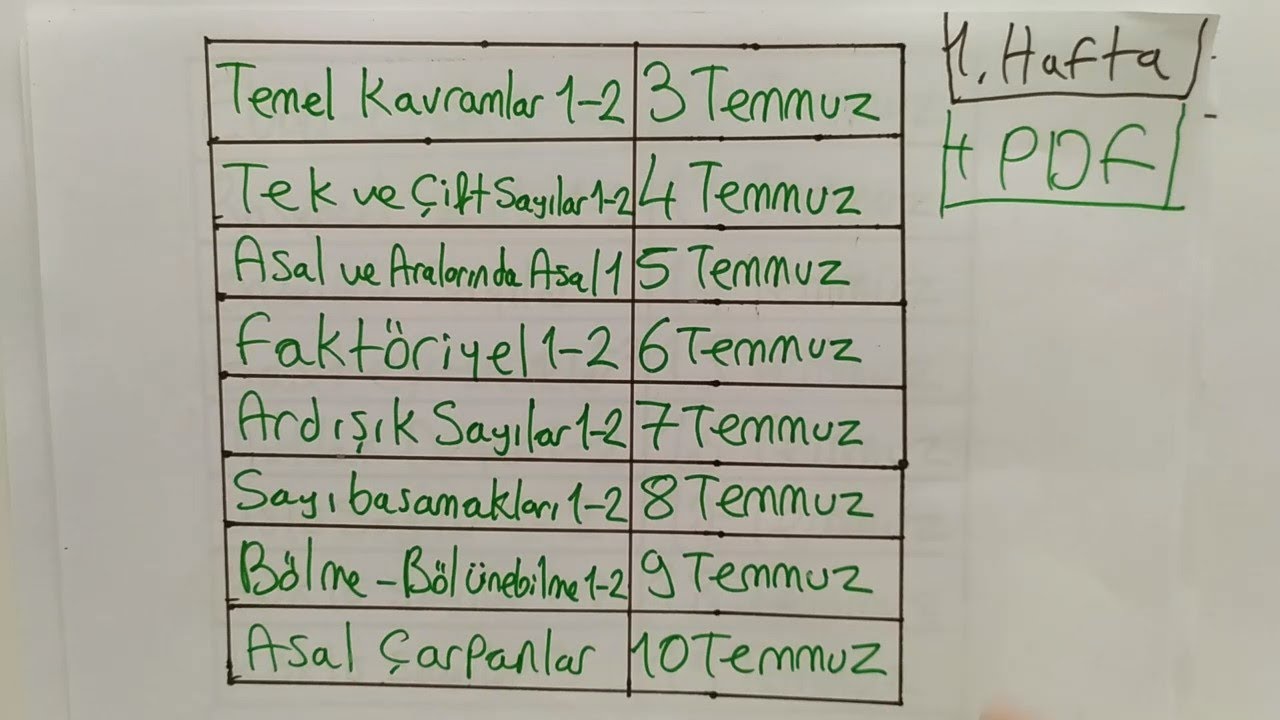 Temel Kavramlar 1-2 3 Temmuz
Tek ve Çift Sayılar 1-2 4 Temmuz
Asal ve Aralarında Asal 1 5 Temmuz
Faktöriyel 1-2 6 Temmuz
Ardışık Sayılar 1-2 7 Temmuz
Sayı basamakları 1-2 8 Temmuz
Bölme - Bölünebilme 1-2 9 Temmuz
Asal Çarpanlar 10 Temmuz
1. Hafta
+ PDF